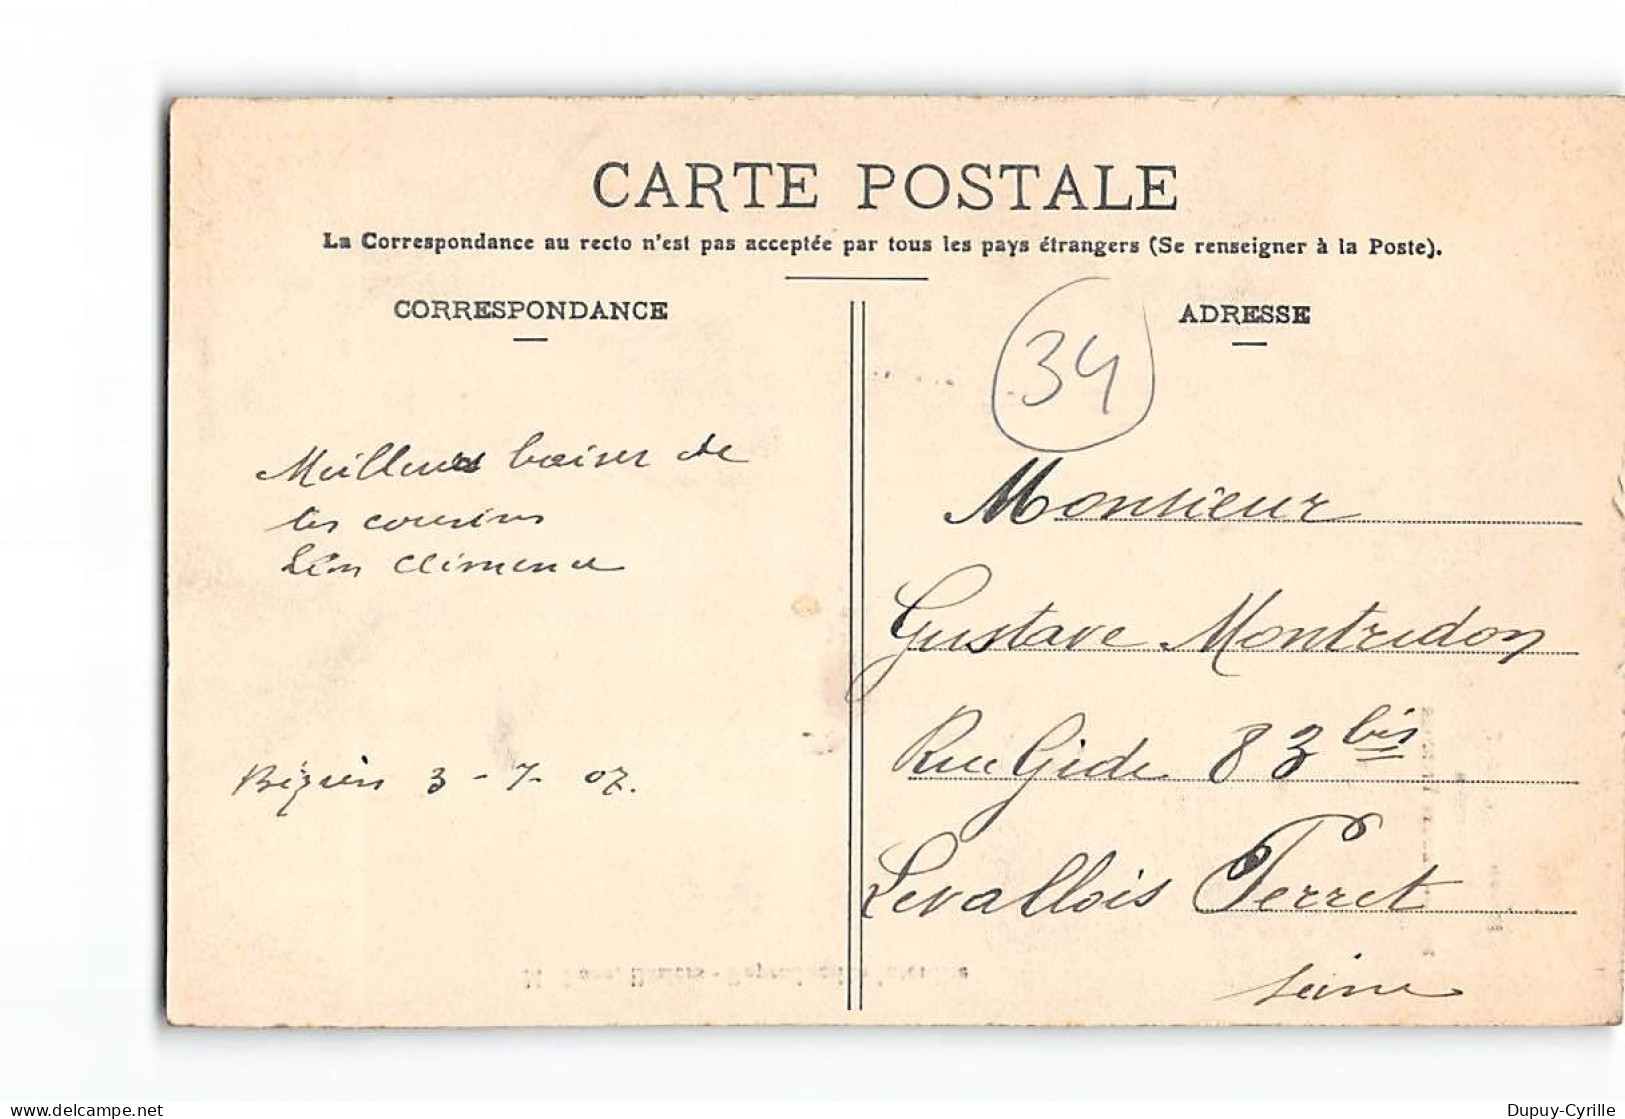 CARTE POSTALE
La Correspondance au recto n'est pas acceptée par tous les pays étrangers (Se renseigner à la Poste).
CORRESPONDANCE
Meilleurs baiser de
tes cousins
Léon Clémence
Béziers 3-7-07.
ADRESSE
34
Monsieur
Gustave Montredon
Rue Gide 83 bis
Levallois Perret
Seine
Dupuy-Cyrille
delcampe.net